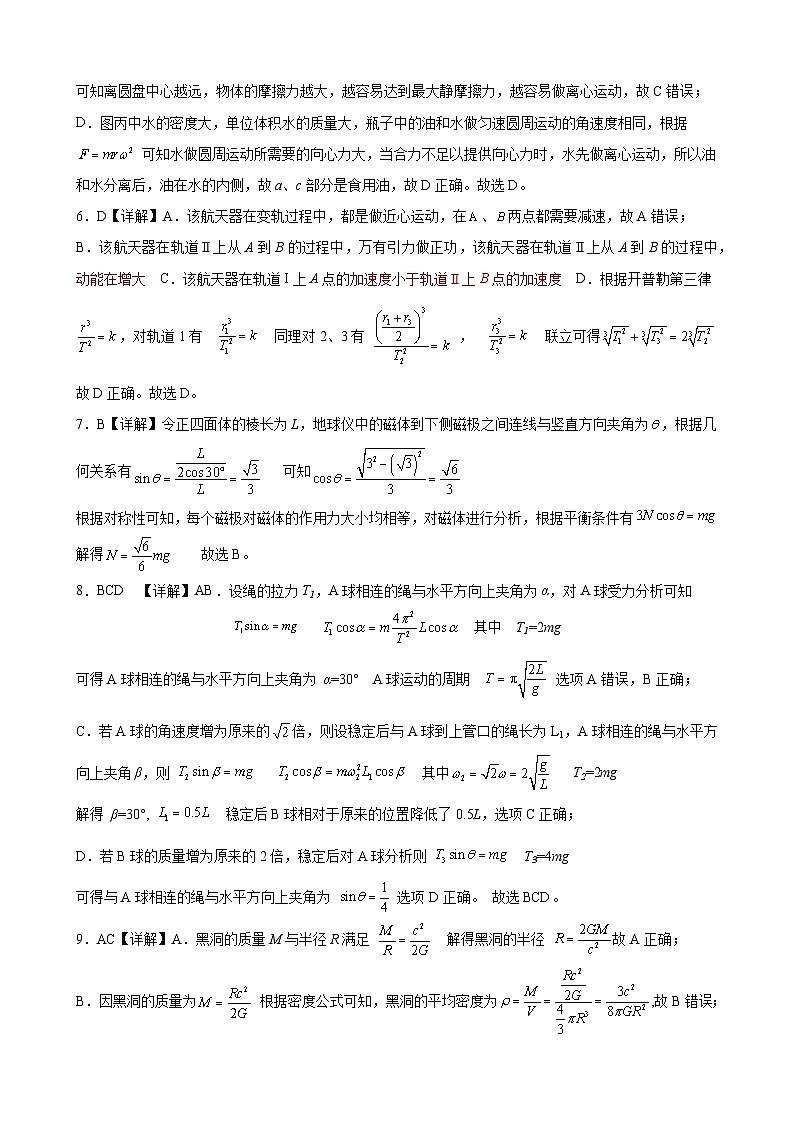 可知离圆盘中心越远，物体的摩擦力越大，越容易达到最大静摩擦力，越容易做离心运动，故 C 错误；
D．图丙中水的密度大，单位体积水的质量大，瓶子中的油和水做匀速圆周运动的角速度相同，根据
F = mrω² 可知水做圆周运动所需要的向心力大，当合力不足以提供向心力时，水先做离心运动，所以油
和水分离后，油在水的内侧，故 a、c 部分是食用油，故 D 正确。故选 D。
6．D【详解】A．该航天器在变轨过程中，都是做近心运动，在 A 、B 两点都需要减速，故 A 错误；
B．该航天器在轨道Ⅱ上从 A 到 B 的过程中，万有引力做正功，该航天器在轨道Ⅱ上从 A 到 B 的过程中，
动能在增大 C．该航天器在轨道 I 上 A 点的加速度小于轨道Ⅱ上 B 点的加速度 D．根据开普勒第三律
r³/T² = k，对轨道 1 有 r₁³/T₁² = k 同理对 2、3 有 ((r₁+r₃)/2)³/T₂² = k ， r₃³/T₃² = k 联立可得 ∛T₁² + ∛T₃² = 2∛T₂²
故 D 正确。故选 D。
7．B【详解】令正四面体的棱长为 L，地球仪中的磁体到下侧磁极之间连线与竖直方向夹角为 θ，根据几
何关系有 sinθ = (L/(2cos30°))/L = √3/3 可知 cosθ = √(3²−(√3)²)/3 = √6/3
根据对称性可知，每个磁极对磁体的作用力大小均相等，对磁体进行分析，根据平衡条件有 3N cosθ = mg
解得 N = (√6/6)mg 故选 B。
8．BCD 【详解】AB．设绳的拉力 T₁，A 球相连的绳与水平方向上夹角为 α，对 A 球受力分析可知
T₁sinα = mg T₁cosα = m(4π²/T²)Lcosα 其中 T₁=2mg
可得 A 球相连的绳与水平方向上夹角为 α=30° A 球运动的周期 T = π√(2L/g) 选项 A 错误，B 正确；
C．若 A 球的角速度增为原来的 √2 倍，则设稳定后与 A 球到上管口的绳长为 L₁，A 球相连的绳与水平方
向上夹角 β，则 T₂ sinβ = mg T₂ cosβ = mω₂²L₁cosβ 其中 ω₂ = √2ω = 2√(g/L) T₂=2mg
解得 β=30°, L₁ = 0.5L 稳定后 B 球相对于原来的位置降低了 0.5L，选项 C 正确；
D．若 B 球的质量增为原来的 2 倍，稳定后对 A 球分析则 T₃ sinθ = mg T₃=4mg
可得与 A 球相连的绳与水平方向上夹角为 sinθ = 1/4 选项 D 正确。 故选 BCD。
9．AC【详解】A．黑洞的质量 M 与半径 R 满足 M/R = c²/2G 解得黑洞的半径 R = 2GM/c² 故 A 正确；
B．因黑洞的质量为 M = Rc²/2G 根据密度公式可知，黑洞的平均密度为 ρ = M/V = (Rc²/2G)/((4/3)πR³) = 3c²/8πGR² ,故 B 错误；